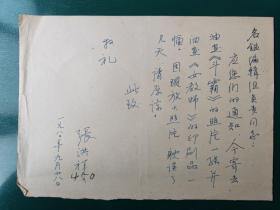 名鉴编辑组负责同志：
应您们的通知 今寄去
油画《斗霸》的照片一张并
油画《女教师》的印刷品一
幅。因跟放大照片 耽误了
几天 请原谅。
此致
敬礼
张洪祥
一九八〇年九月廿八日
450